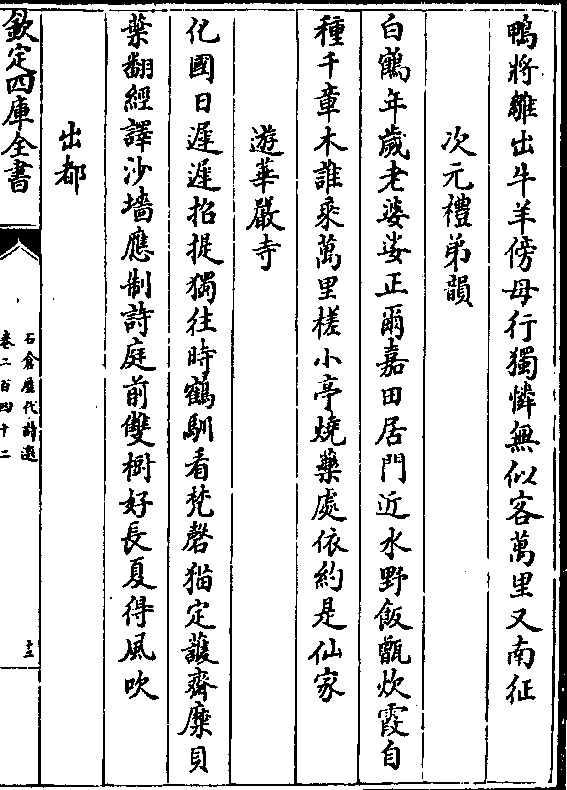 鴨將雛出牛羊傍母行獨憐無似客萬里又南征
次元禮弟韻
白鶴年歲老婆娑正爾嘉田居門近水野飯甑炊霞自
種千章木誰乘萬里槎小亭燒藥處依約是仙家
遊華嚴寺
化國日遲遲招提獨往時鶴馴看梵磬猫定護齋糜貝
葉翻經譯沙墻應制詩庭前雙樹好長夏得風吹
出都
欽定四庫全書
石倉歷代詩選
卷二百四十二
十三